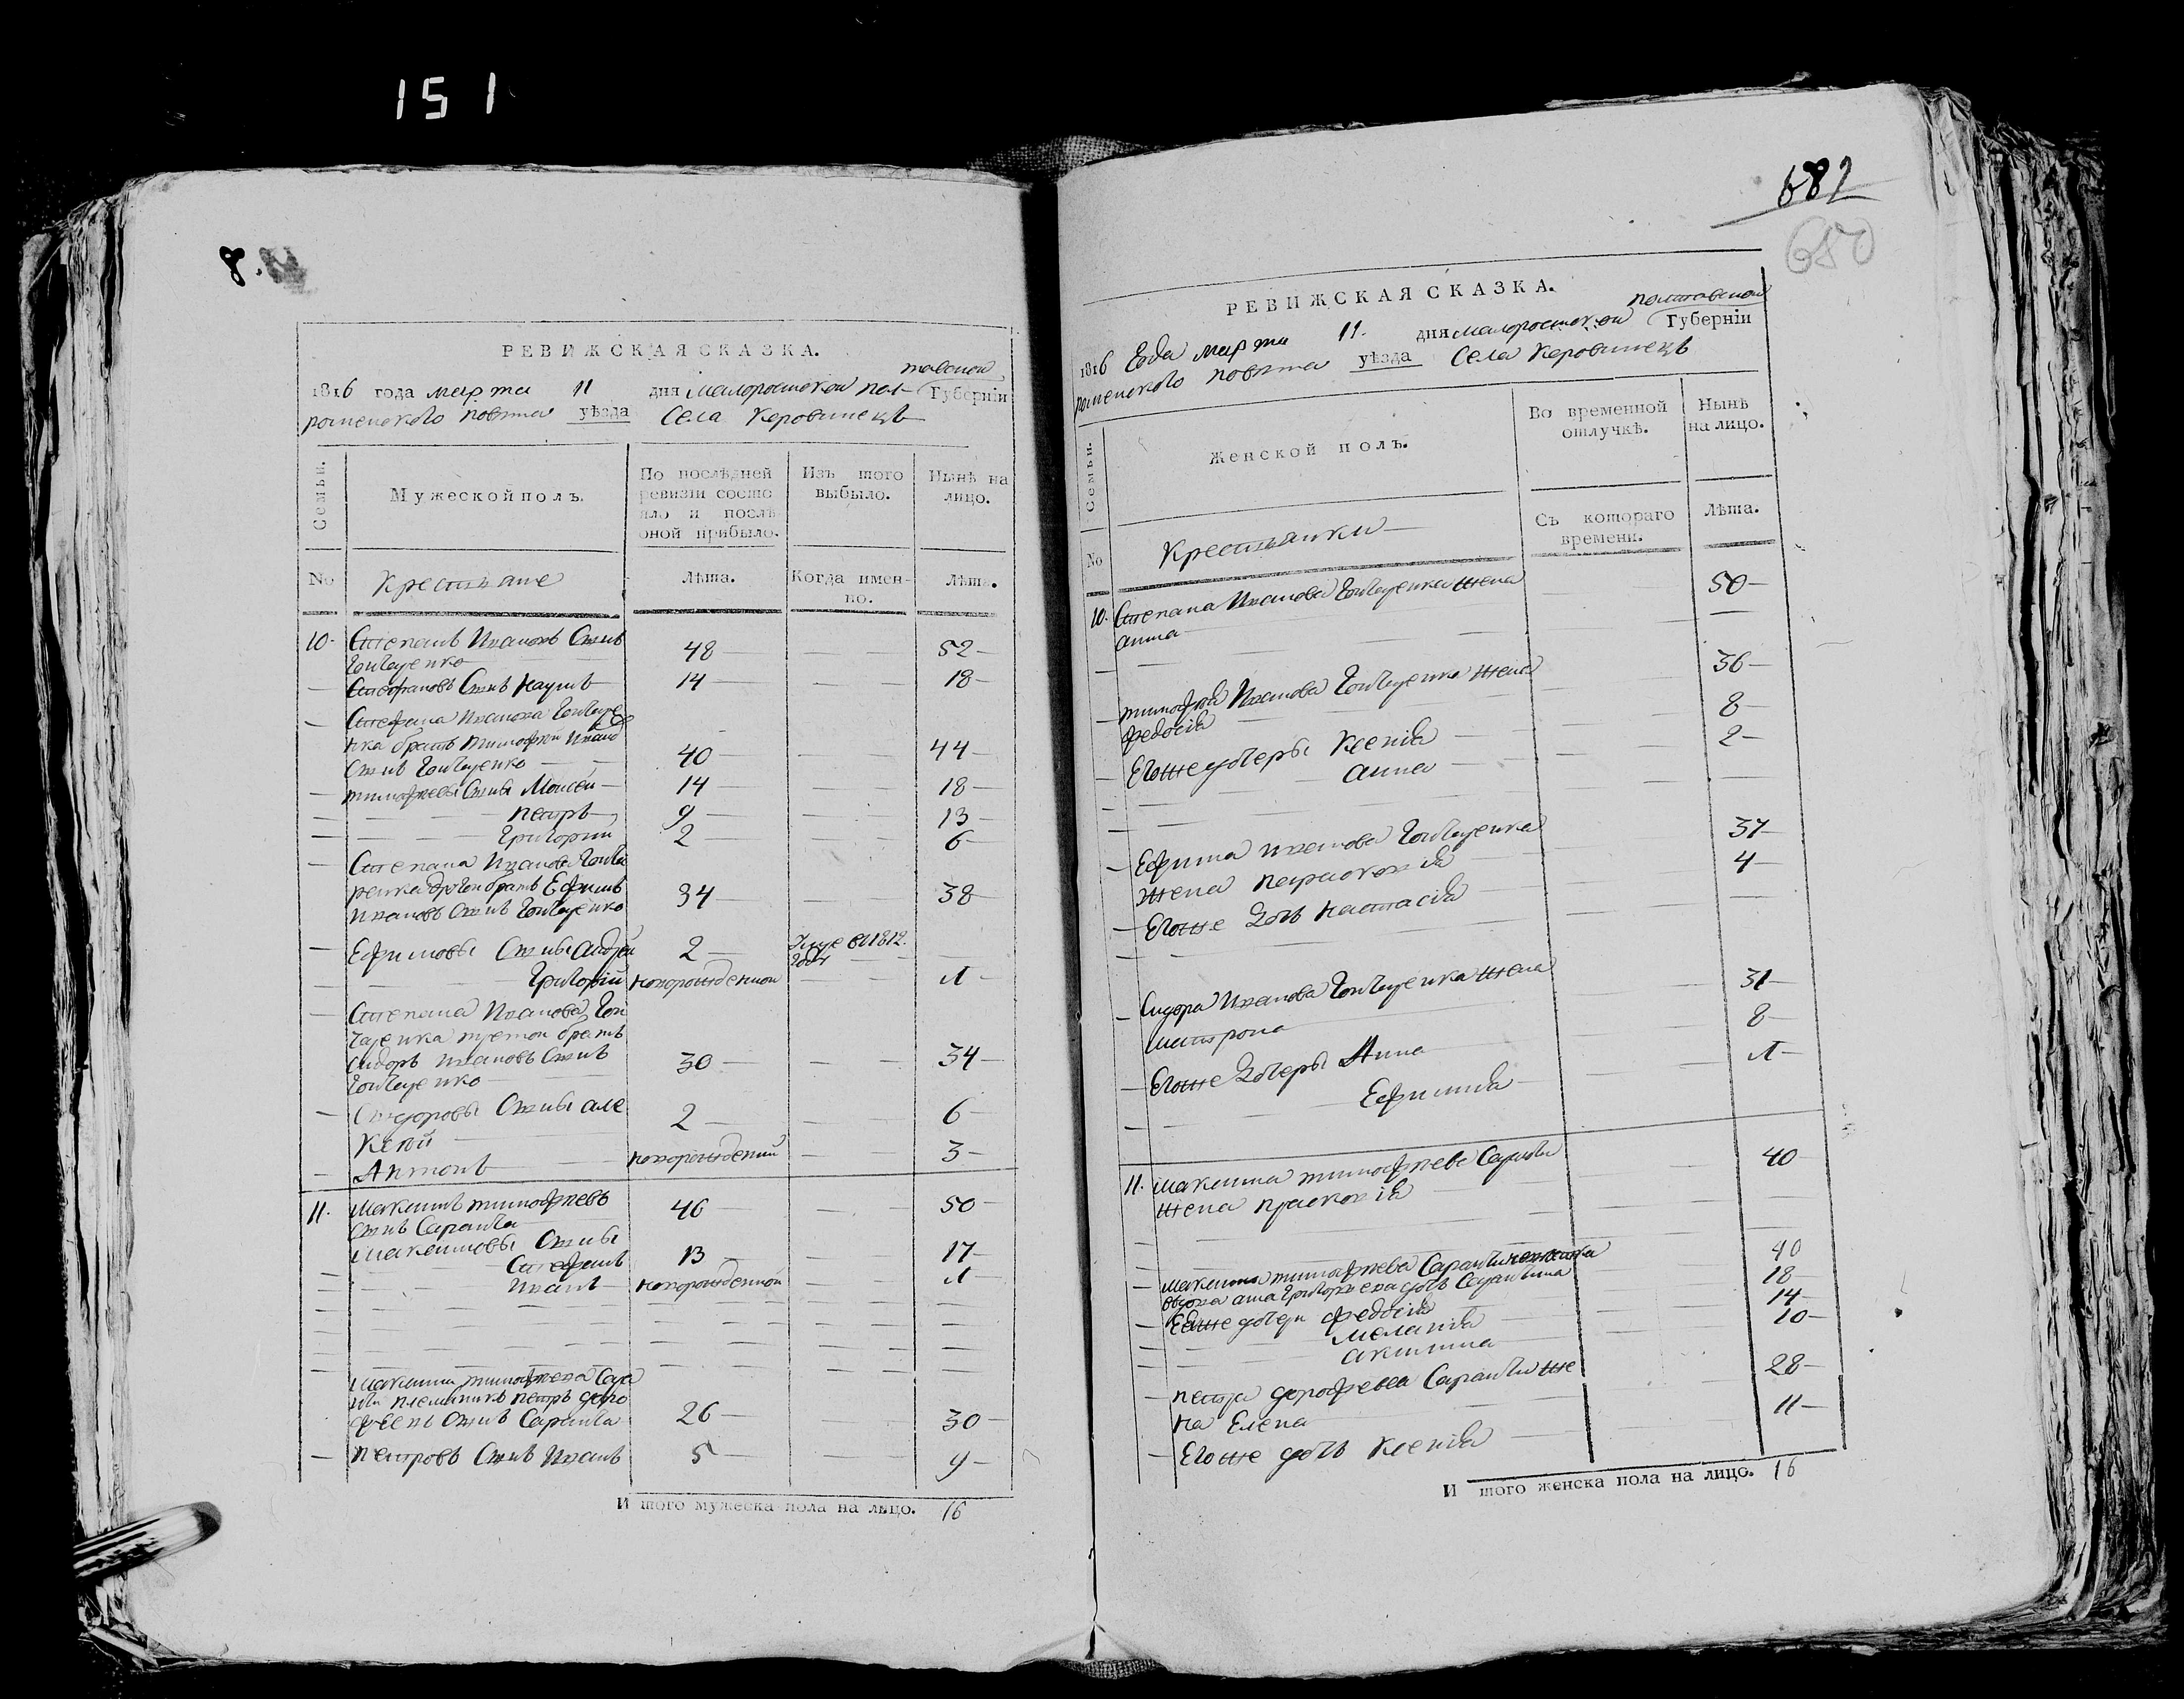 151
8.
РЕВИЖСКАЯ СКАЗКА.
тавской
1816 года марта 11 дня Малоросискои пол- Губерніи
роменского повѣта уѣзда Села Коровинецъ
Семьи.
Мужеской полъ.
По послѣдней ревизіи состояло и послѣ оной прибыло.
Изъ того выбыло.
Нынѣ на лицо.
No
Крестьяне
Лѣта.
Когда именно.
Лѣта.
10. Степанъ Ивановъ Сынъ
Гончаренко 48 52
Степановъ Сынъ Наумъ 14 18
Степана Иванова Гончаре
нка братъ тимофей Иванов
Сынъ Гончаренко 40 44
тимофеевы Сыны Моисей 14 18
петръ 9 13
Григорий 2 6
Степана Иванова Гонча
ренка другой братъ Ефимъ
Ивановъ Сынъ Гончаренко 34 38
Ефимовы Сыны Андрей 2 Умре в 1812 году
Григорій новорожденной 1
Степана Иванова Гон
чаренка третой братъ
Сидоръ Ивановъ Сынъ
Гончаренко 30 34
Сидоровы Сыны але
ксѣй 2 6
Антонъ новорожденний 3
11. Максимъ тимофеевъ
Сынъ Саранча 46 50
Максимовы Сыны
Стефанъ 13 17
Иванъ новорожденной 1
Максима тимофеева Сара
нчи племянникъ петръ доро
феевъ Сынъ Саранча 26 30
петровъ Сынъ Иванъ 5 9
И того мужеска пола на лицо. 16
681
680
РЕВИЖСКАЯ СКАЗКА.
полтавской
1816 Года марта 11. дня малоросискои Губерніи
роменского повѣта уѣзда Села Коровинецъ
Семьи.
Женской полъ.
Во временной отлучкѣ.
Нынѣ на лицо.
No
Крестьянки
Съ котораго времени.
Лѣта.
10. Степана Иванова Гончаренка жена 50
анна
тимофея Иванова Гончаренка жена 36
федосія
Егоже дочеры Ксенія 8
анна 2
Ефима иванова Гончаренка 37
жена параскевія
Егоже дочь настасія 4
Сидора Иванова Гончаренка жена 31
матрона
Егоже дочеры Анна 8
Ефимія 1
11. максима тимофеева Саранчи 40
жена прасковія
максима тимофеева Саранчи невестка
вдова анна Григорьева дочь Саранчина 40
Еяже дочери федосія 18
меланія 14
акилина 10
петра дорофеева Саранчи же 28
на Елена
Егоже дочь Ксенія 11
И того женска пола на лицо. 16